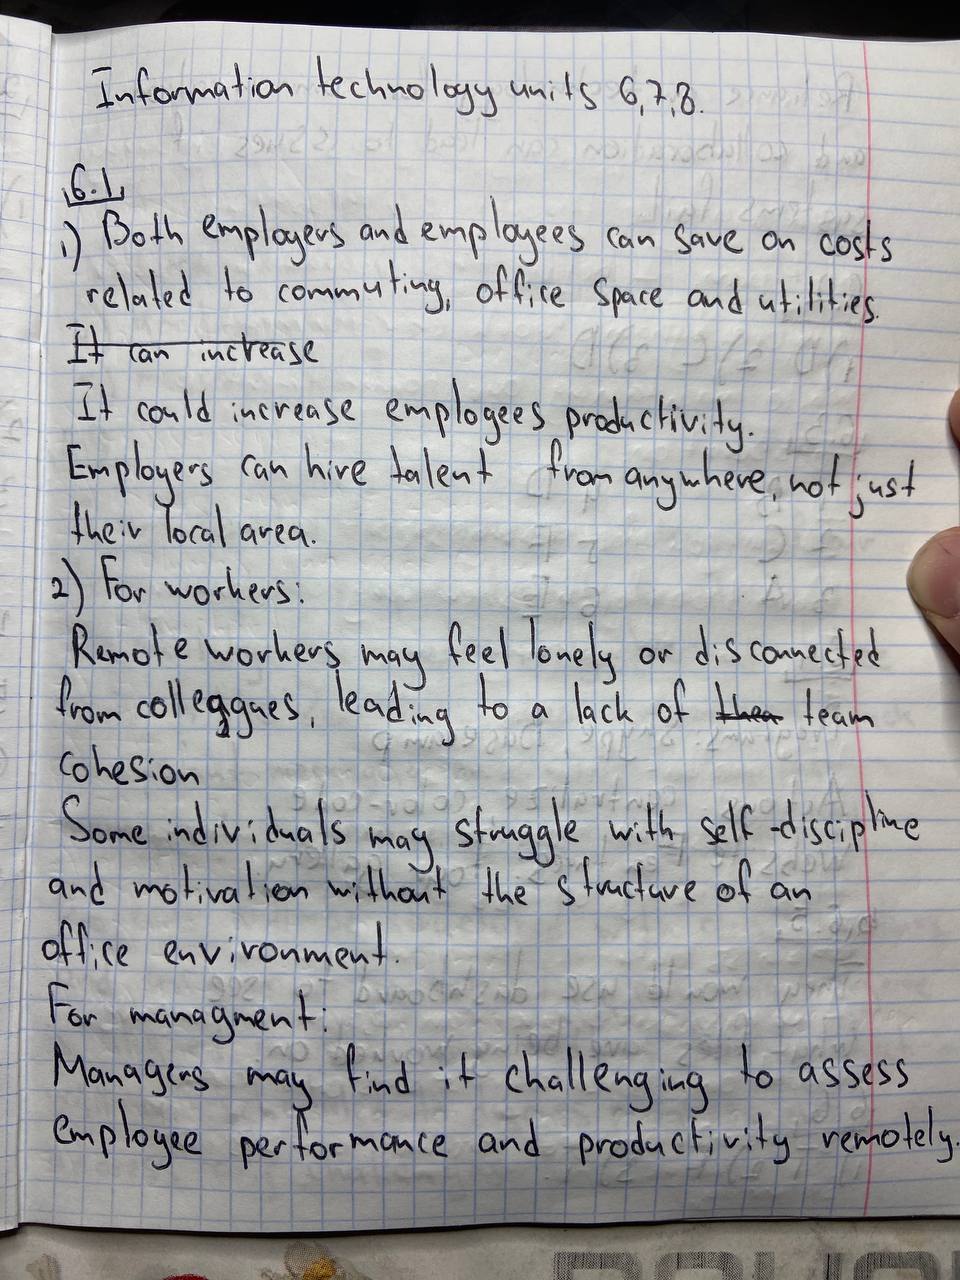 Information technology units 6,7,8.
6.1
1) Both employers and employees can save on costs
related to commuting, office space and utilities.
It can increase
It could increase employees productivity.
Employers can hire talent from anywhere, not just
their local area.
2) For workers:
Remote workers may feel lonely or disconnected
from colleagues, leading to a lack of team
cohesion
Some individuals may struggle with self-discipline
and motivation without the structure of an
office environment.
For managment:
Managers may find it challenging to assess
employee performance and productivity remotely.